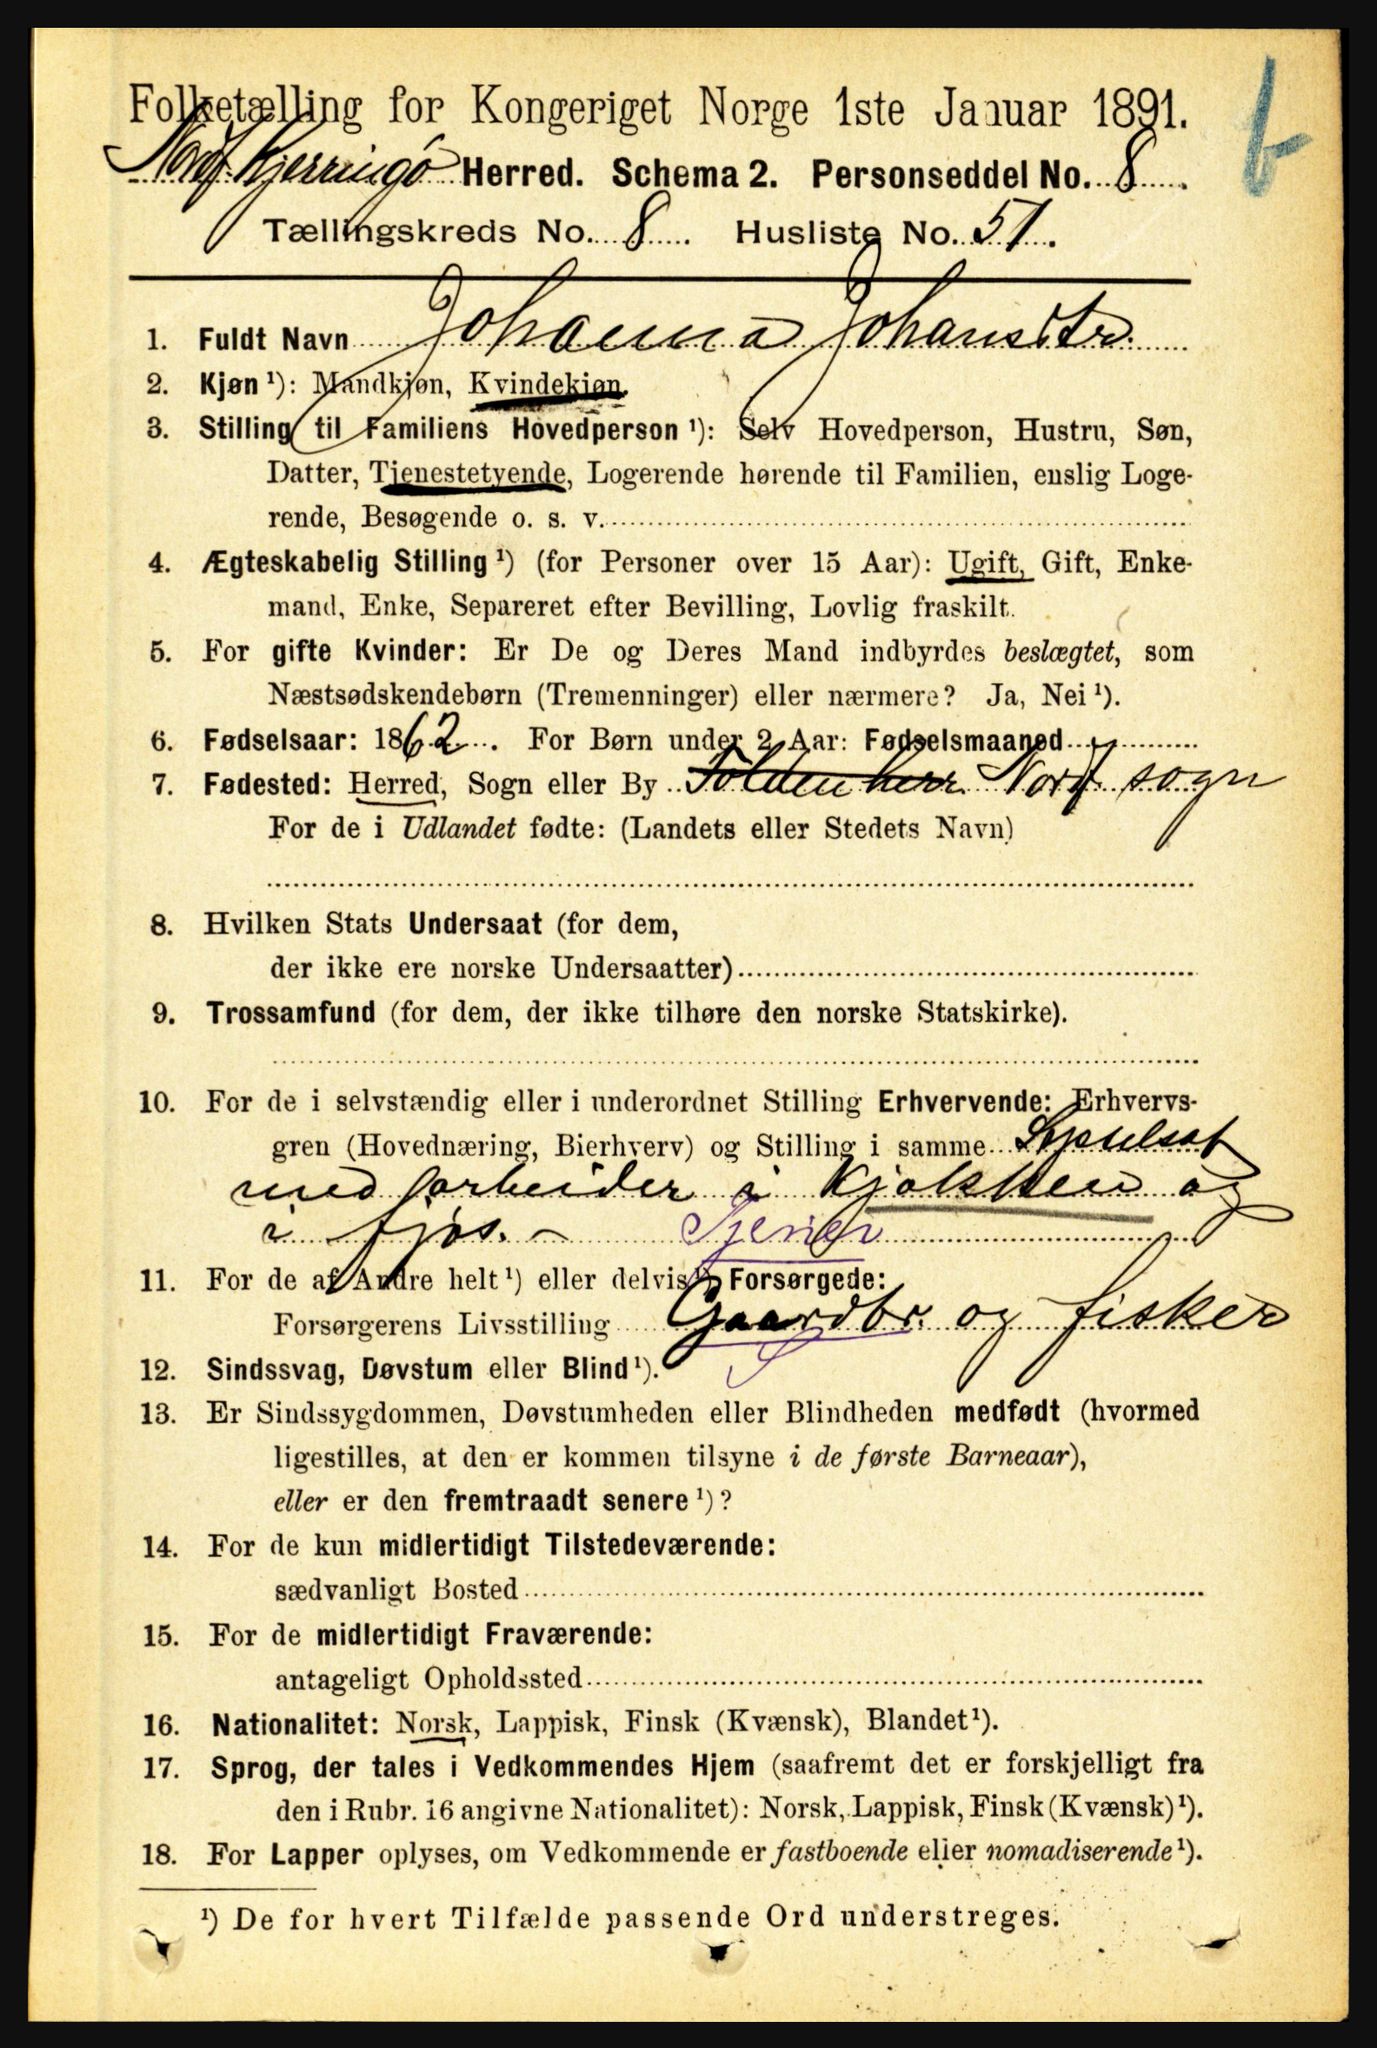 Folketælling for Kongeriget Norge 1ste Januar 1891.
Nordf. Kjerringø Herred. Schema 2. Personseddel No. 8.
Tællingskreds No. 8. Husliste No. 51.
1. Fuldt Navn Johanna Johansdtr.
2. Kjøn ¹): Mandkjøn, Kvindekjøn.
3. Stilling til Familiens Hovedperson ¹): Selv Hovedperson, Hustru, Søn,
Datter, Tjenestetyende, Logerende hørende til Familien, enslig Loge-
rende, Besøgende o. s. v.
4. Ægteskabelig Stilling ¹) (for Personer over 15 Aar): Ugift, Gift, Enke-
mand, Enke, Separeret efter Bevilling, Lovlig fraskilt.
5. For gifte Kvinder: Er De og Deres Mand indbyrdes beslægtet, som
Næstsødskendebørn (Tremenninger) eller nærmere? Ja, Nei ¹).
6. Fødselsaar: 1862. For Børn under 2 Aar: Fødselsmaaned
7. Fødested: Herred, Sogn eller By Folden herr. Nordf. sogn
For de i Udlandet fødte: (Landets eller Stedets Navn)
8. Hvilken Stats Undersaat (for dem,
der ikke ere norske Undersaatter)
9. Trossamfund (for dem, der ikke tilhøre den norske Statskirke).
10. For de i selvstændig eller i underordnet Stilling Erhvervende: Erhvervs-
gren (Hovednæring, Bierhverv) og Stilling i samme Sysselsat
med arbeider i Kjøkken og
i fjøs. – Tjener
11. For de af Andre helt ¹) eller delvis ¹) Forsørgede:
Forsørgerens Livsstilling Gaardbr. og fisker
12. Sindssvag, Døvstum eller Blind ¹).
13. Er Sindssygdommen, Døvstumheden eller Blindheden medfødt (hvormed
ligestilles, at den er kommen tilsyne i de første Barneaar),
eller er den fremtraadt senere ¹)?
14. For de kun midlertidigt Tilstedeværende:
sædvanligt Bosted
15. For de midlertidigt Fraværende:
antageligt Opholdssted
16. Nationalitet: Norsk, Lappisk, Finsk (Kvænsk), Blandet ¹).
17. Sprog, der tales i Vedkommendes Hjem (saafremt det er forskjelligt fra
den i Rubr. 16 angivne Nationalitet): Norsk, Lappisk, Finsk (Kvænsk) ¹).
18. For Lapper oplyses, om Vedkommende er fastboende eller nomadiserende ¹).
¹) De for hvert Tilfælde passende Ord understreges.